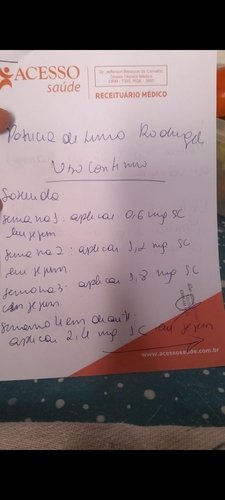 ACESSO
saúde
Dr. Jefferson Renaycon de Carvalho
Diretor Técnico Médico
RECEITUÁRIO MÉDICO
Patricia de Lima Rodrigues
Uso Contínuo
Saxenda
Semana 1: aplicar 0,6 mg SC
em jejum
Semana 2: aplicar 1,2 mg SC
em jejum
Semana 3: aplicar 1,8 mg SC
em jejum
Semana 4 em diante:
aplicar 2,4 mg SC em jejum
www.acessosaude.com.br